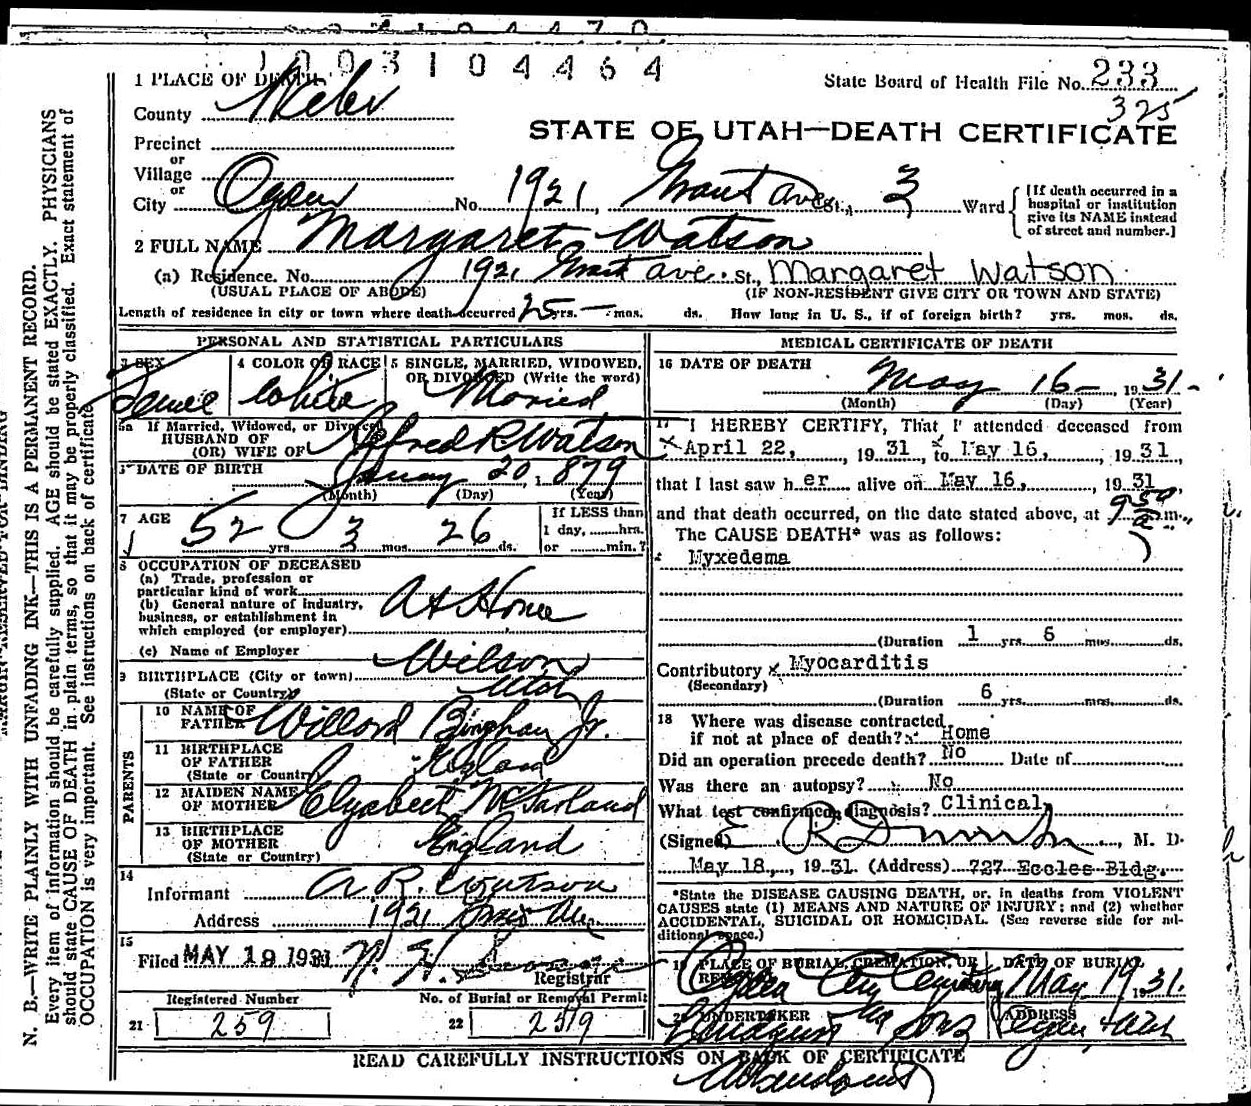 1003104464
1 PLACE OF DEATH
State Board of Health File No. 233
County Weber
325
STATE OF UTAH—DEATH CERTIFICATE
Precinct
or
Village
or
City Ogden No. 1921, Grant Ave St., 3 Ward
[If death occurred in a hospital or institution give its NAME instead of street and number.]
2 FULL NAME Margaret Watson
(a) Residence. No. 1921 Grant Ave. St., Margaret Watson
(USUAL PLACE OF ABODE) (IF NON-RESIDENT GIVE CITY OR TOWN AND STATE)
Length of residence in city or town where death occurred 25 yrs. — mos. ds. How long in U. S., if of foreign birth? yrs. mos. ds.
PERSONAL AND STATISTICAL PARTICULARS
3 SEX 4 COLOR OR RACE 5 SINGLE, MARRIED, WIDOWED, OR DIVORCED (Write the word)
Female White Married
5a If Married, Widowed, or Divorced
HUSBAND OF
(OR) WIFE OF Alfred R Watson
DATE OF BIRTH January 20, 1879
(Month) (Day) (Year)
7 AGE 52 yrs. 3 mos. 26 ds.
If LESS than
1 day, hrs.
or min.?
8 OCCUPATION OF DECEASED
(a) Trade, profession or
particular kind of work
(b) General nature of industry,
business, or establishment in
which employed (or employer)
At Home
(c) Name of Employer
9 BIRTHPLACE (City or town) Wilson
(State or Country) Utah
PARENTS
10 NAME OF FATHER Willard Bingham Jr.
11 BIRTHPLACE
OF FATHER
(State or Country)
12 MAIDEN NAME
OF MOTHER Elyzabeth McFarland
13 BIRTHPLACE
OF MOTHER England
(State or Country)
14
Informant A. R. Watson
Address 1921 Grant Ave
15
Filed MAY 19 1931
Registrar
Registered Number No. of Burial or Removal Permit
21 259 22 259
MEDICAL CERTIFICATE OF DEATH
16 DATE OF DEATH
May 16 — 1931 -
(Month) (Day) (Year)
17 I HEREBY CERTIFY, That I attended deceased from
April 22, 1931 to May 16, 1931,
that I last saw her alive on May 16, 1931
and that death occurred, on the date stated above, at 9:50 a m.
The CAUSE DEATH* was as follows:
Myxedema
(Duration 1 yrs. 6 mos. ds.
Contributory Myocarditis
(Secondary)
(Duration 6 yrs. mos. ds.
18 Where was disease contracted
if not at place of death? Home
Did an operation precede death? No Date of
Was there an autopsy? No
What test confirmed diagnosis? Clinical
(Signed) E R , M. D.
May 18, 1931. (Address) 727 Eccles Bldg.
*State the DISEASE CAUSING DEATH, or, in deaths from VIOLENT
CAUSES state (1) MEANS AND NATURE OF INJURY; and (2) whether
ACCIDENTAL, SUICIDAL OR HOMICIDAL. (See reverse side for ad-
ditional space.)
19 PLACE OF BURIAL, CREMATION, OR DATE OF BURIAL
Ogden City Cemetery May 19 1931.
20 UNDERTAKER ADDRESS
Sons Ogden, Utah
READ CAREFULLY INSTRUCTIONS ON BACK OF CERTIFICATE
N. B.—WRITE PLAINLY WITH UNFADING INK—THIS IS A PERMANENT RECORD.
Every item of information should be carefully supplied. AGE should be stated EXACTLY. PHYSICIANS
should state CAUSE OF DEATH in plain terms, so that it may be properly classified. Exact statement of
OCCUPATION is very important. See instructions on back of certificate